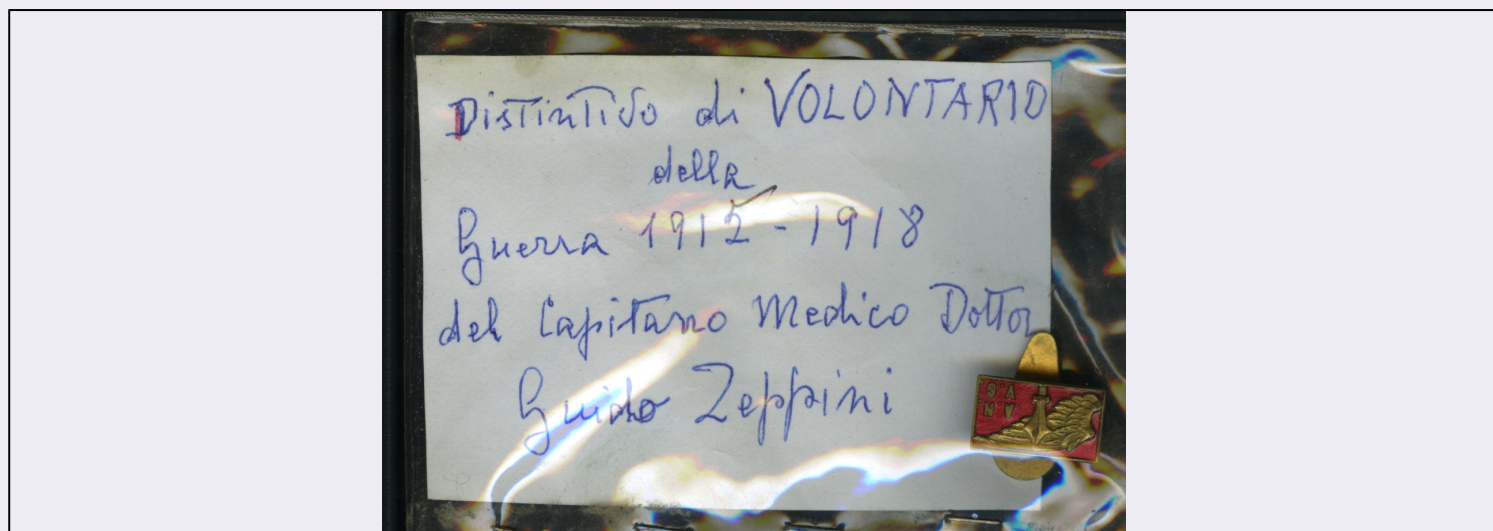 Distintivo di VOLONTARIO
della
Guerra 1915-1918
del Capitano Medico Dottor
Guido Zeppini
A.N.
V.G.